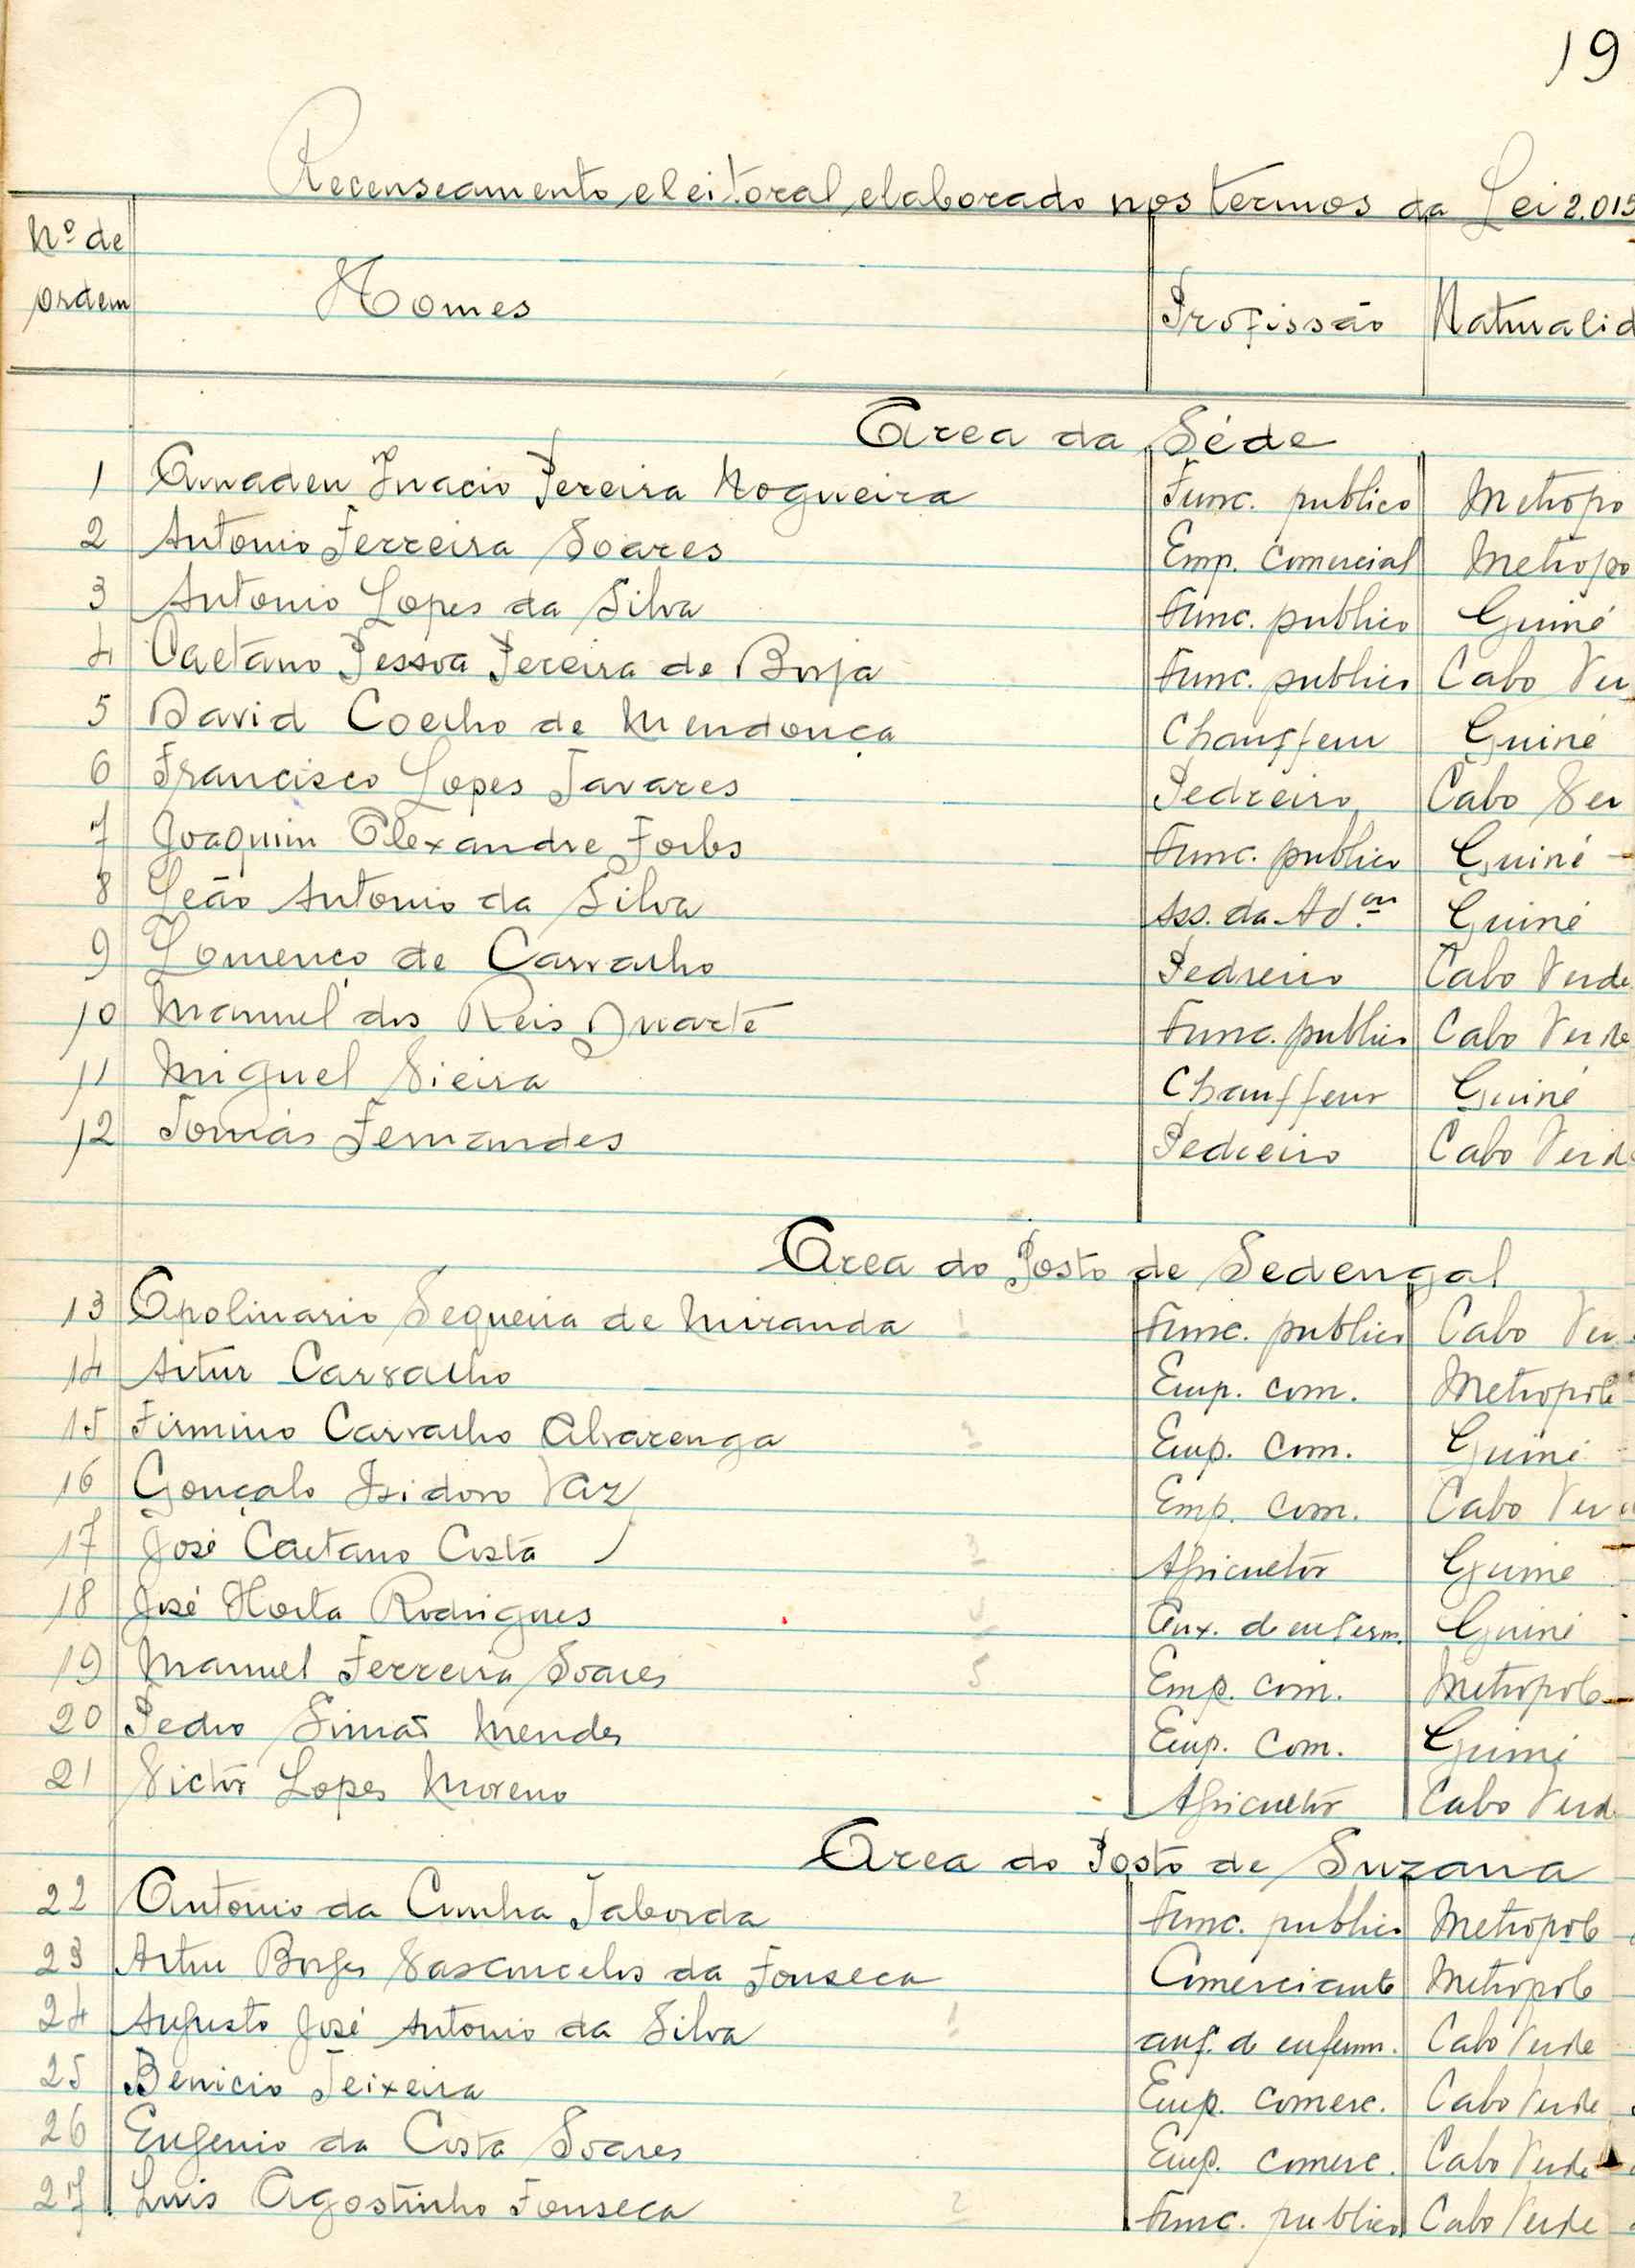 19
Recenseamento eleitoral elaborado nos termos da Lei 2.015
Nº de ordem Nomes Profissão Naturalid
Area da Séde
1 Amadeu Inacio Pereira Nogueira Func. publico Metropo
2 Antonio Ferreira Soares Emp. Comercial Metropo
3 Antonio Lopes da Silva Func. publico Guiné
4 Caetano Pessoa Pereira de Borja Func. publico Cabo Ver
5 David Coelho de Mendonça Chauffeur Guiné
6 Francisco Lopes Tavares Pedreiro Cabo Ver
7 Joaquim Alexandre Forbs Func. publico Guiné
8 Leão Antonio da Silva Ass. da Adon Guiné
9 Lourenço de Carvalho Pedreiro Cabo Verde
10 Manuel dos Reis Duarte Func. publico Cabo Verde
11 Miguel Vieira Chauffeur Guiné
12 Tomás Fernandes Pedreiro Cabo Verde
Area do Posto de Sedengal
13 Apolinario Sequeira de Miranda 1 Func. publico Cabo Ver
14 Artur Carvalho Emp. com. Metropole
15 Firmino Carvalho Alvarenga Emp. com. Guiné
16 Gonçalo Isidoro Vaz Emp. com. Cabo Ver
17 José Caetano Costa 3 Agricultor Guiné
18 José Horta Rodrigues Aux. de enferm. Guiné
19 Manuel Ferreira Soares 5 Emp. com. Metropole
20 Pedro Simão Mendes Emp. com. Guiné
21 Victor Lopes Moreno Agricultor Cabo Verd
Area do Posto de Suzana
22 Antonio da Cunha Taborda Func. publico Metropole
23 Artur Borges Vasconcelos da Fonseca Comerciante Metropole
24 Augusto José Antonio da Silva 1 aux. de enferm. Cabo Verde
25 Benicio Teixeira Emp. comerc. Cabo Verde
26 Eugenio da Costa Soares Emp. comerc. Cabo Verde
27 Luis Agostinho Fonseca 2 Func. publico Cabo Verde